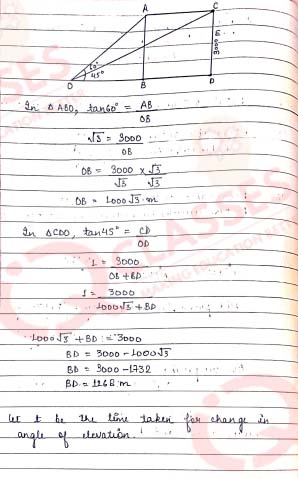 A
C
3000 m
60°
45°
O
B
D
In △ ABO, tan60° = AB/OB
√3 = 3000/OB
OB = 3000/√3 × √3/√3
OB = 1000√3 m
In △CDO, tan45° = CD/OD
1 = 3000/OB+BD
1 = 3000/1000√3 + BD
1000√3 + BD = 3000
BD = 3000 - 1000√3
BD = 3000 - 1732
BD = 1268 m
Let t be the time taken for change in
angle of elevation.